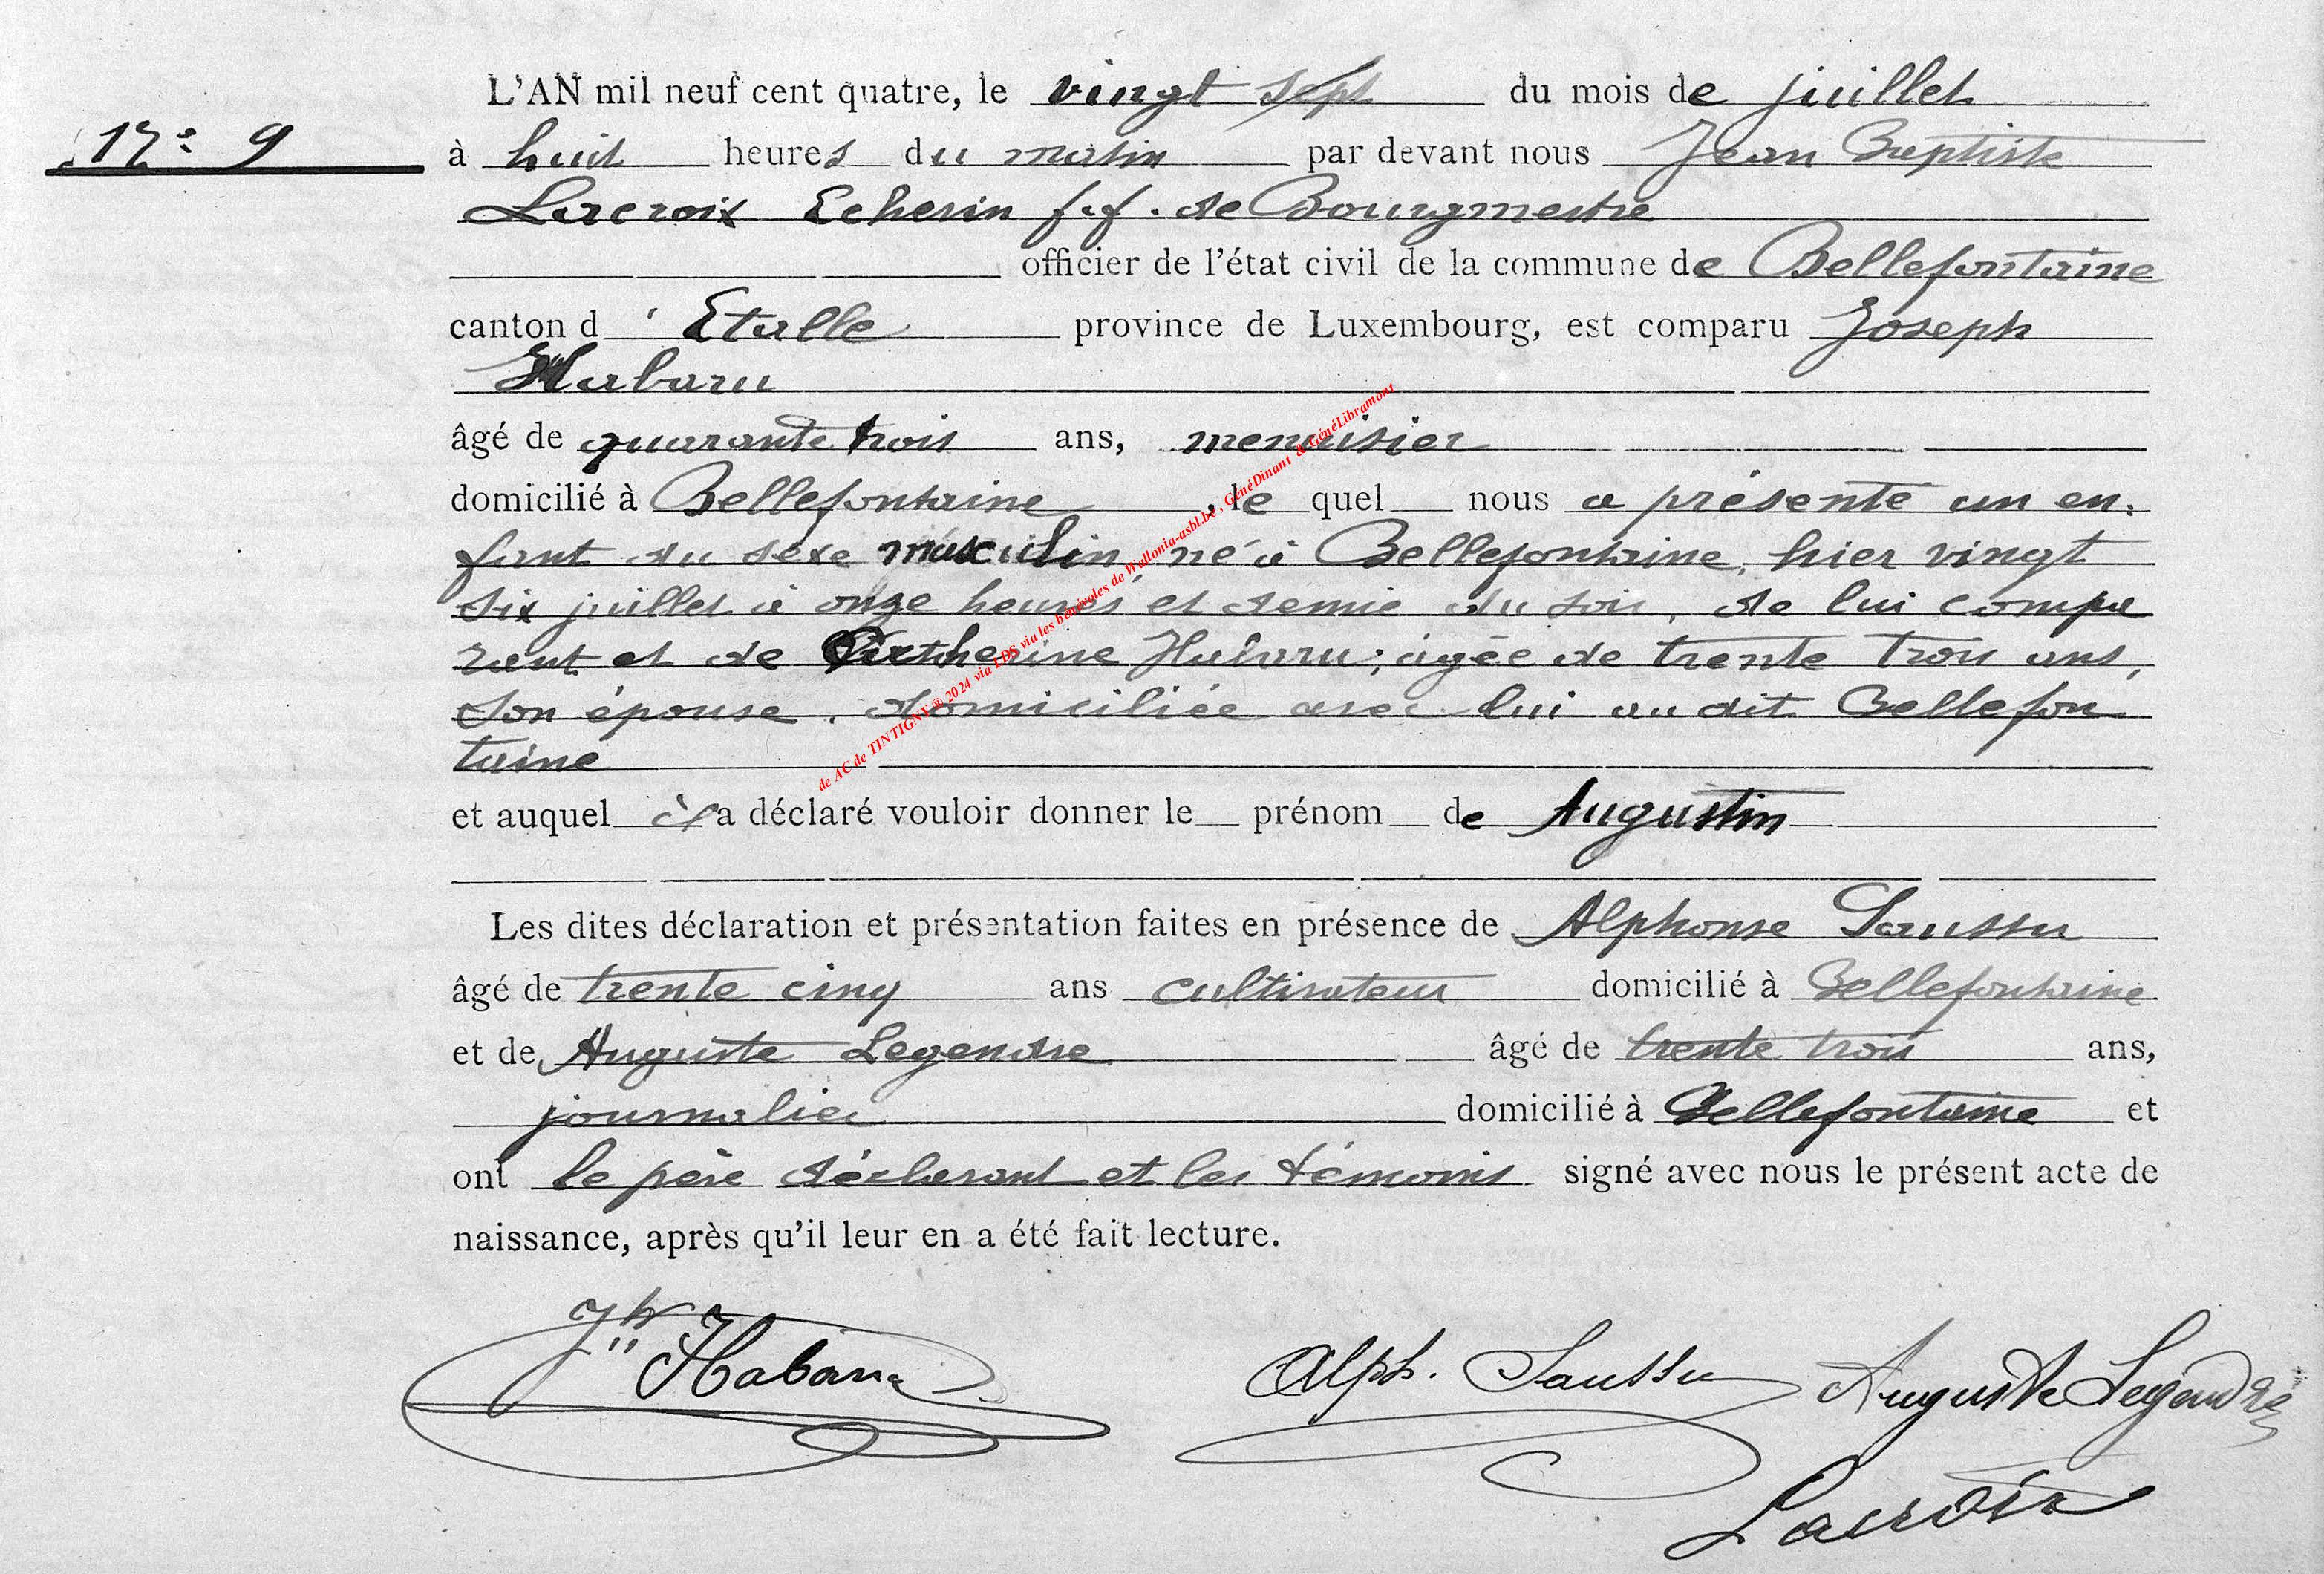 L'AN mil neuf cent quatre, le vingt sept du mois de juillet
N° 9
à huit heures du matin par devant nous Jean Baptiste
Lacroix Echevin f.f. de Bourgmestre
officier de l'état civil de la commune de Bellefontaine
canton d'Etalle province de Luxembourg, est comparu Joseph
Habaru
âgé de quarante trois ans, menuisier
domicilié à Bellefontaine, le quel nous a présenté un en-
fant du sexe masculin, né à Bellefontaine, hier vingt
six juillet à onze heures et demie du soir, de lui compa
rant et de Catherine Habaru, âgée de trente trois ans,
son épouse, domiciliée avec lui au dit Bellefon
taine
et auquel il a déclaré vouloir donner le prénom de Augustin
Les dites déclaration et présentation faites en présence de Alphonse Saussu
âgé de trente cinq ans cultivateur domicilié à Bellefontaine
et de Auguste Legendre âgé de trente trois ans,
journalier domicilié à Bellefontaine et
ont le père déclarant et les témoins signé avec nous le présent acte de
naissance, après qu'il leur en a été fait lecture.
Jh Habaru Alph. Saussu Auguste Legendre
Lacroix
de AC de TINTIGNY © 2024 via LDS via les bénévoles de Wallonia-asbl.be, GénéDinant & GénéLibramont